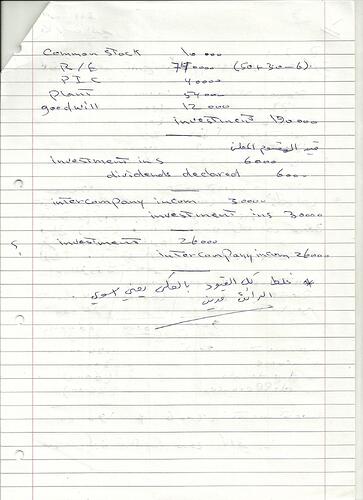 Common stock 10 000
R/E 74000 (50+30-6).
P I C 40000
plant 5400
goodwill 12 000
investment 190000
قيد التوزيع المعلن
investment in s 6000
dividends declared 6000
intercompany incom 30000
investment in s 30000
؟ investment 26000
intercompany incom 26000
* غلط كل القيود بالعكس يعني نسوي
الدائن مدين